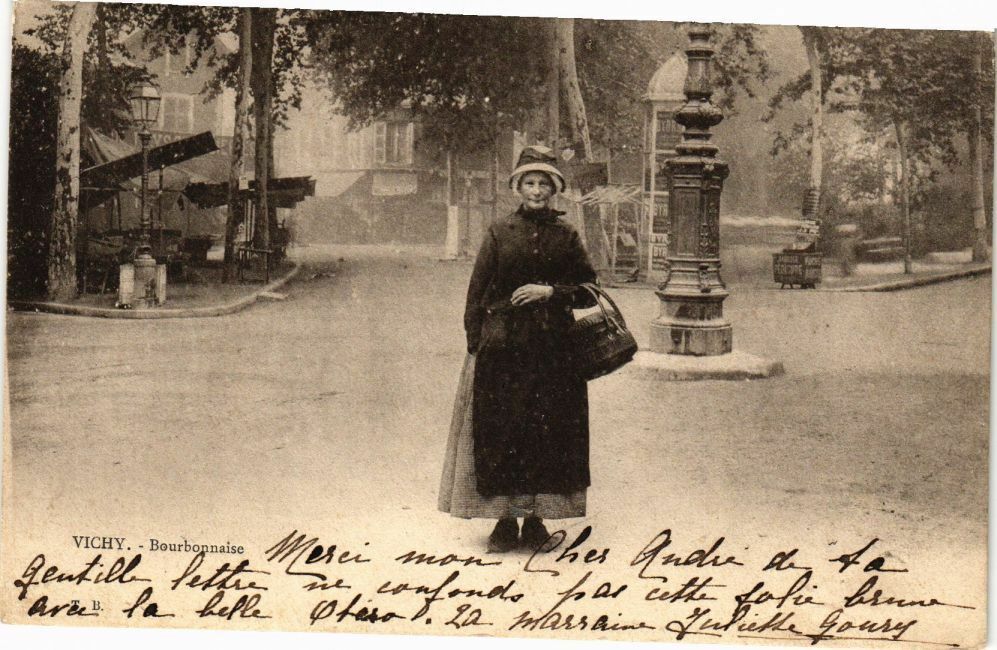 VICHY. - Bourbonnaise
Merci mon Cher Andre de ta
gentille lettre ne confonds pas cette jolie brune
T. B.
avec la belle Otero. La Marraine Juliette Goury